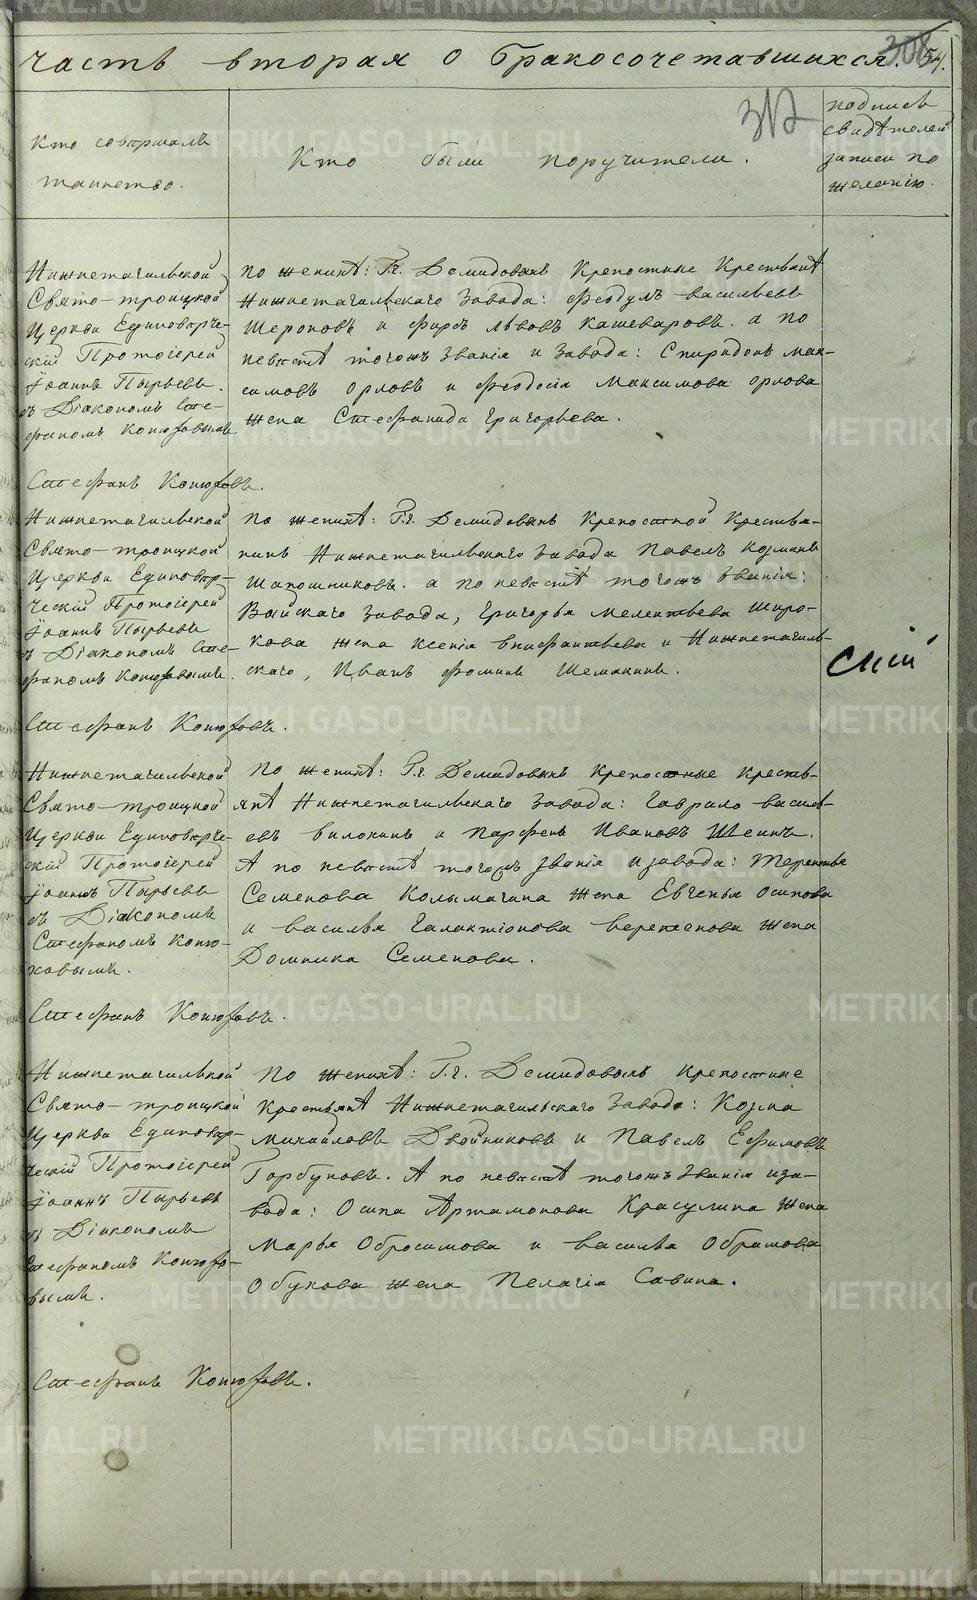 часть вторая о бракосочетавшихся.
308
54.
312
Кто совершалъ
таинство.
Кто были поручители.
подпись
свидѣтелей
записи по
желанію.
Нижнетагильской
Свято-троицкой
Церкви Единовѣрче-
скій Протоіерей
Іоаннъ Пырьевъ.
съ Діакономъ Сте-
фаномъ Конюховымъ
Стефанъ Конюховъ.
по женихѣ: Г.г. Демидовыхъ Крепостные Крестьянѣ
Нижнетагильскаго завода: Феодулъ васильевъ
Шероновъ и фирсъ Львовъ Кашеваровъ. а по
невѣстѣ тогожъ званія и завода: Спиридонъ мак-
симовъ орловъ и феодосія Максимова орлова
жена Стефанида Григорьева.
Нижнетагильской
Свято-троицкой
Церкви Единовѣр-
ческій Протоіерей
Іоаннъ Пырьевъ
съ Діакономъ Сте-
фаномъ Конюховымъ.
Стефанъ Конюховъ.
по женихѣ: Г.г. Демидовыхъ Крепостной Крестья-
нинъ Нижнетагильскаго завода Павелъ Козминъ
Шапошниковъ. а по невѣстѣ тогожъ званія:
Выйскаго завода, Григорья мелентьева Широ-
кова жена Ксенія епифантьева и Нижнетагиль-
скаго, Иванъ фоминъ Шемякинъ.
Нижнетагильской
Свято-троицкой
Церкви Единовѣрче-
скій Протоіерей
Іоаннъ Пырьевъ
съ Діакономъ
Стефаномъ Коню-
ховымъ.
Стефанъ Конюховъ.
По женихѣ: Г.г. Демидовыхъ крепостные кресть-
янѣ Нижнетагильскаго завода: Гаврило василь-
евъ Парфенъ Ивановъ Шеинъ.
А по невѣстѣ тогожъ званія и завода: Терентья
Семенова Колымагина жена Евгенья осипова
и василья Галактіонова веретенова жена
Домника Семенова.
Нижнетагилькой
Свято-троицкой
Церкви Единовѣр-
ческій Протоіерей
Іоаннъ Пырьевъ
съ Діакономъ
Стефаномъ Конюхо-
вымъ.
Стефанъ Конюховъ.
По женихѣ: Г.г. Демидовыхъ крепостные
крестьянѣ Нижнетагильскаго завода: Козма
михайловъ Двойниковъ и Павелъ Ефимовъ
Горбуновъ. А по невѣстѣ тогожъ званія и за-
вода: Осипа Артамонова Красулина жена
Марья Обросимова и василья Обрамова
Обухова жена Пелагія Савина.
METRIKI.GASO-URAL.RU